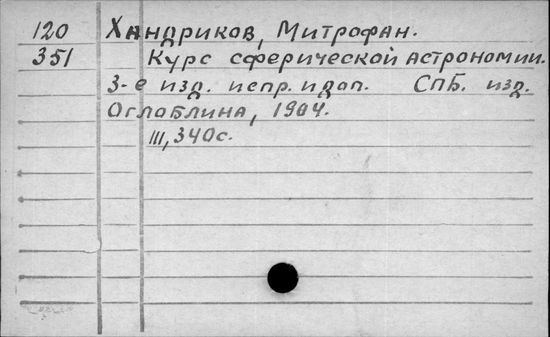 120 Хандриков, Митрофан.
351 Курс сферической астрономии.
3-е изд. испр. и доп. СПБ. изд.
Оглоблина, 1904.
III, 340с.